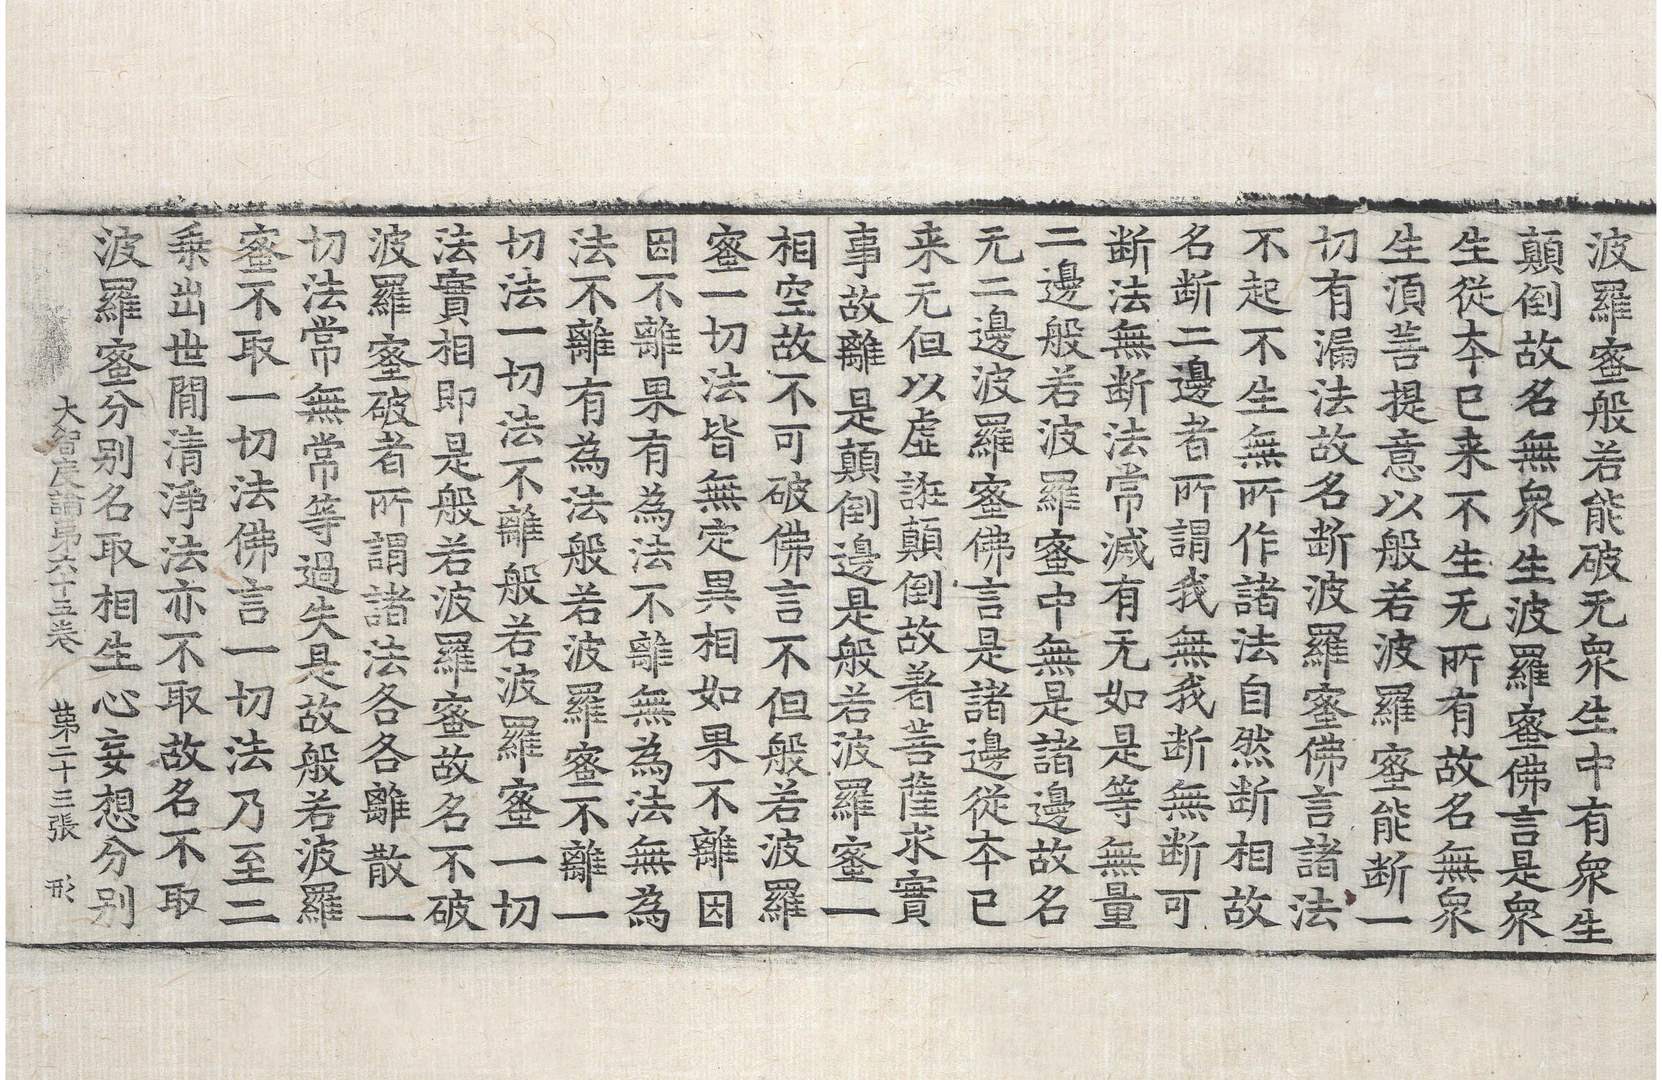 波羅蜜般若能破无衆生中有衆生
顛倒故名無衆生波羅蜜佛言是衆
生從夲已来不生无所有故名無衆
生湏菩提意以般若波羅蜜能断一
切有漏法故名断波羅蜜佛言諸法
不起不生無所作諸法自然断相故
名断二邊者所謂我無我断無断可
断法無断法常滅有无如是等無量
二邊般若波羅蜜中無是諸邊故名
无二邊波羅蜜佛言是諸邊從夲已
来无但以虛誑顛倒故著菩薩求實
事故離是顛倒邊是般若波羅蜜一
相空故不可破佛言不但般若波羅
蜜一切法皆無定異相如果不離因
因不離果有為法不離無為法無為
法不離有為法般若波羅蜜不離一
切法一切法不離般若波羅蜜一切
法實相即是般若波羅蜜故名不破
波羅蜜破者所謂諸法各各離散一
切法常無常等過失是故般若波羅
蜜不取一切法佛言一切法乃至二
乗出世間清淨法亦不取故名不取
波羅蜜分别名取相生心妄想分别
大智度論第六十三卷 第二十三張 形